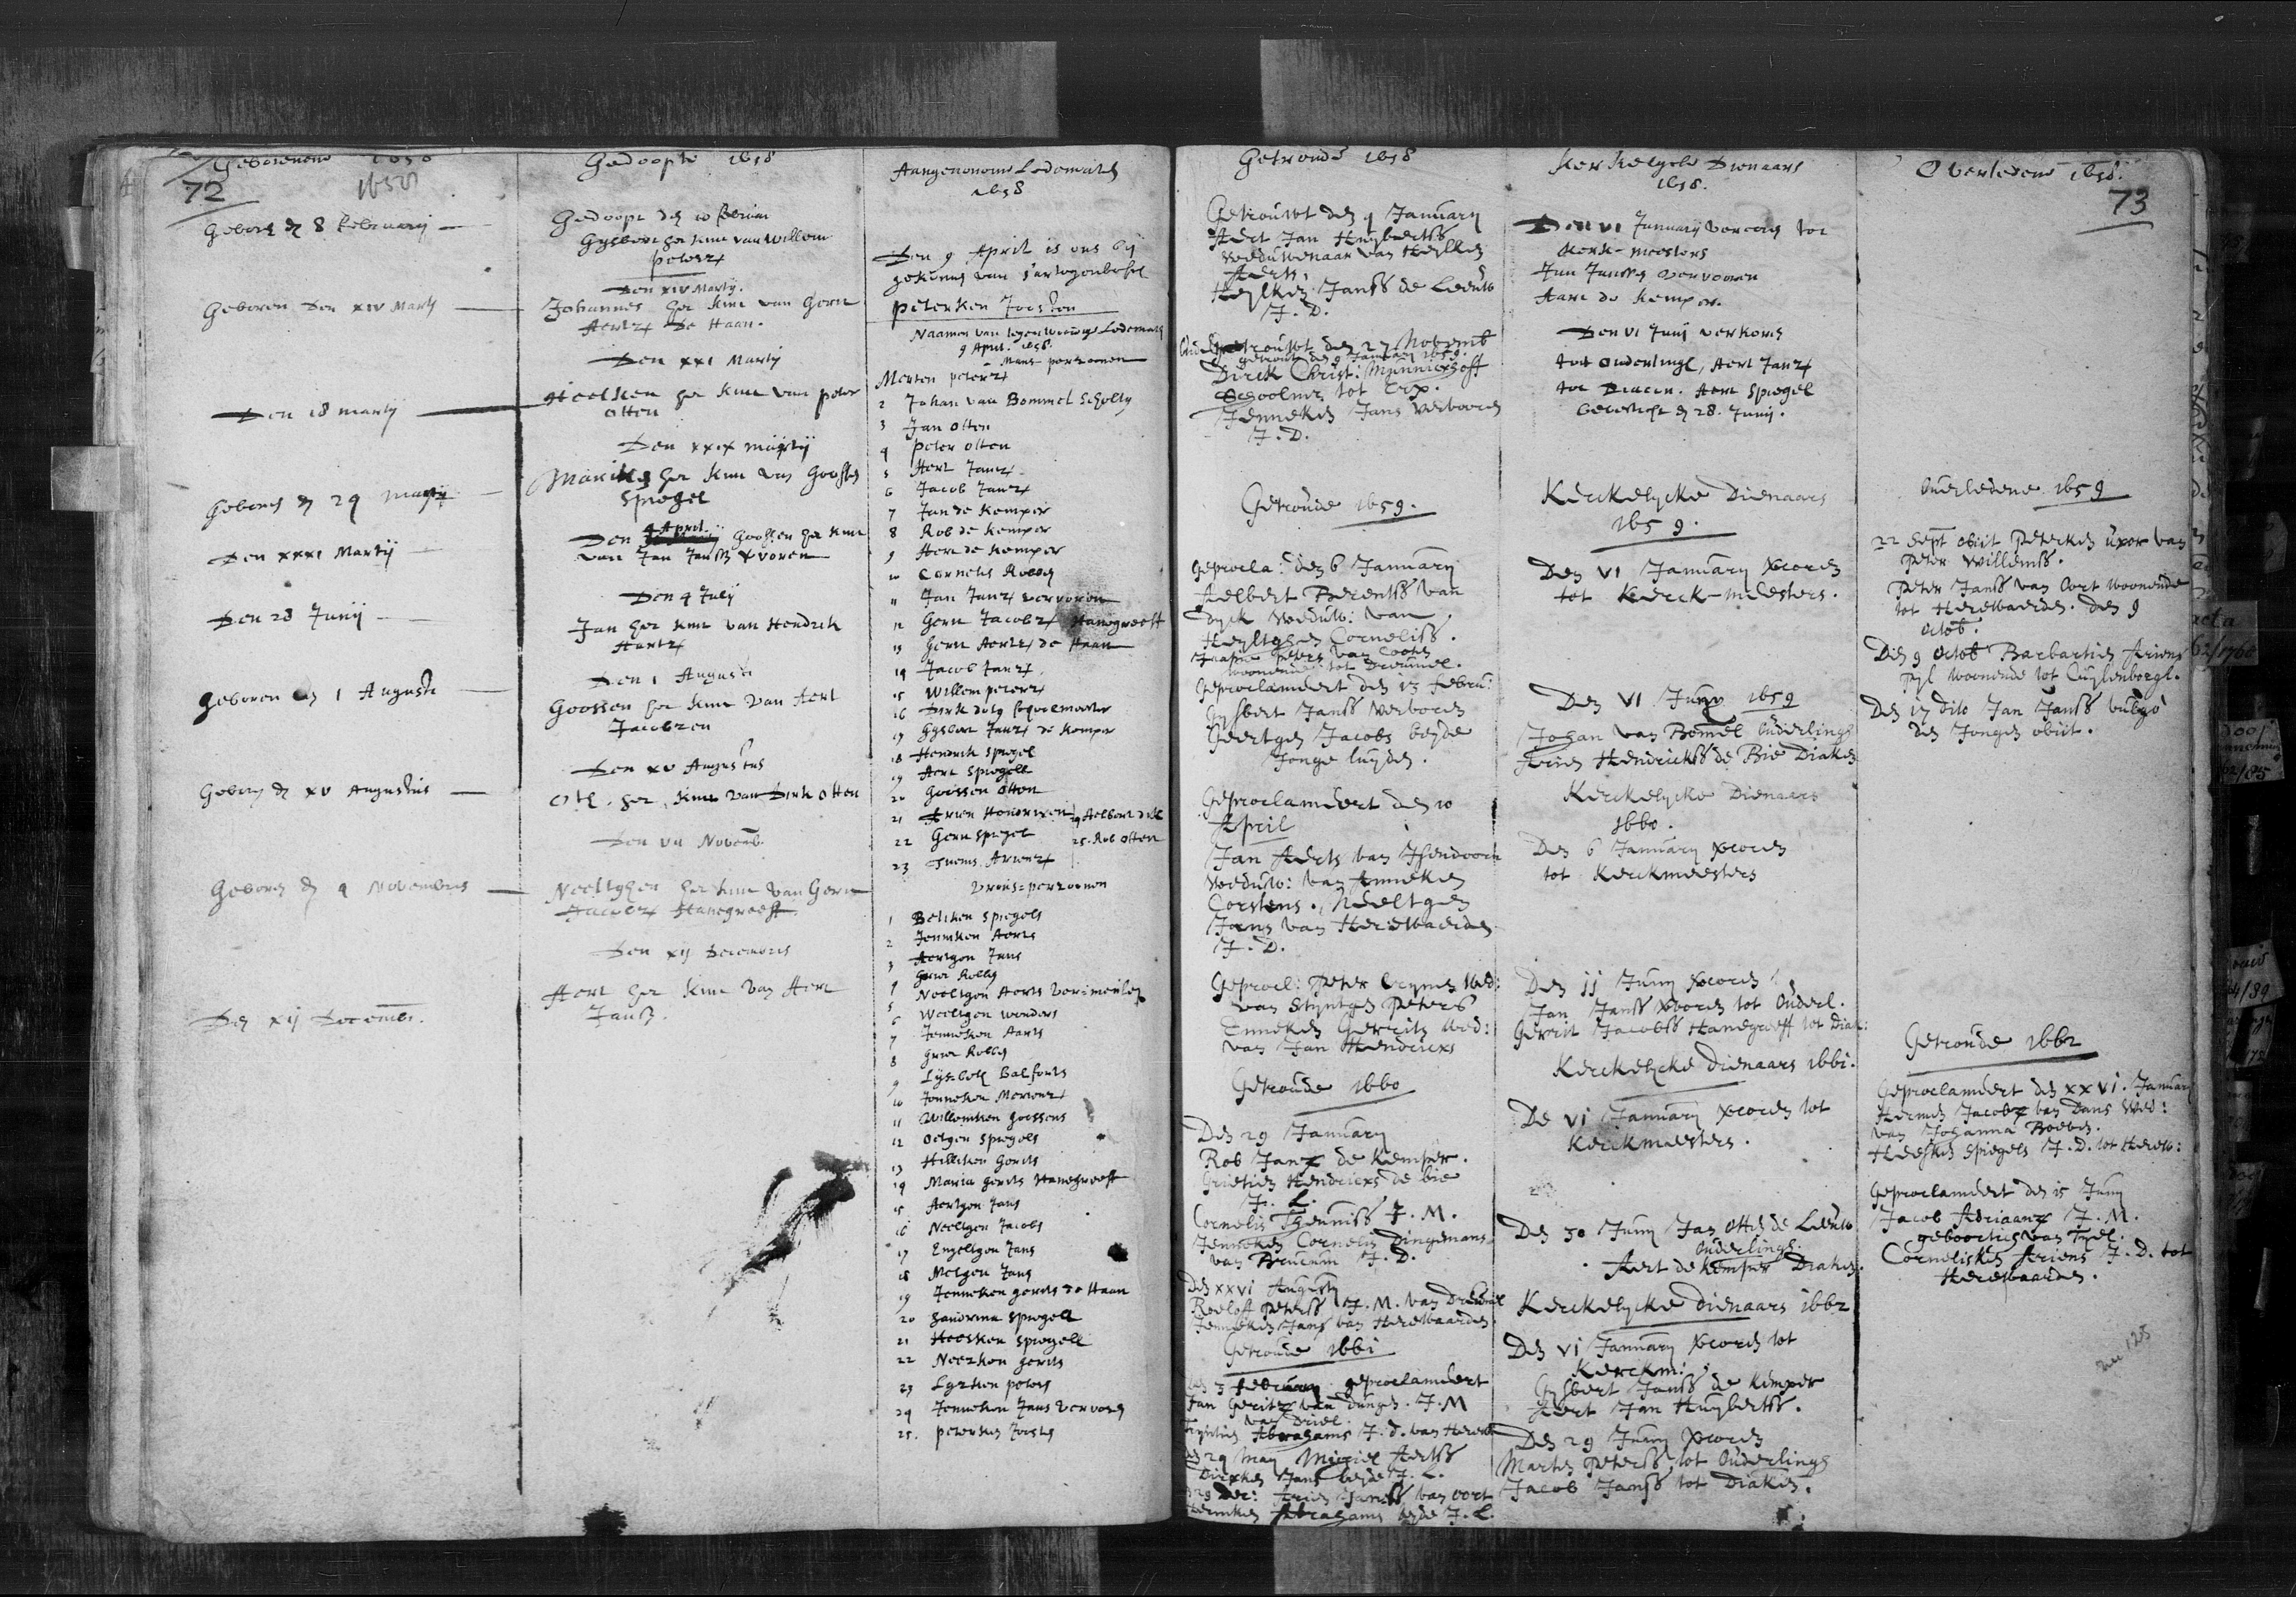 Geborenene 1658
1658
72
Geboren d 8 februarij
Geboren Den XIV Martij
Den 18 martij
Geboren d 29 martij
Den XXXI Martij
Den 28 Junij
Geboren den 1 Augusti
Geboren d XV Augustus
Geboren d 4 Novembris
Den XIJ Decemb.
Gedoopte 1658
Gedoopt den 10 februari
Gysbert het kint van Willem
peterz
Den XIV Martij.
Johannes het kint van Gerrit
Aertz De Haan.
Den XXI Martij
het kint van peter
Otten
Den XXIX martij
Mariken het kint van Goossen
Spiegel
4 April
Den Goossen het kint
van Jan Janss vvoren
Den 4 Julij
Jan het kint van Hendrik
Aertz
Den 1 Augusti
Goossen het kint van Aert
Jacobzen
Den XV Augustus
Ott. het kint van Dirk Otten
Den VII Novemb.
Neeltghen het kint van Gerrit
Jacobz Hanegreeff
Den XIJ Decembris
Aert het kint van Aert
Janss.
Aangenomene Ledematen
1658
Den 9 April is ons bij
gekomen van s'artogenbosch
peterken Joosten
Naamen van tegenwoordige Ledematen
9 April. 1658.
Mans personen
Merten peterz
2 Johan van Bommel Scholtz
3 Jan Otten
4 peter Otten
5 Aert Janz
6 Jacob Janz
7 Jan de Kemper
8 Rob de Kemper
9 Aert de Kemper
10 Cornelis Robben
11 Jan Janz vervoren
12 Gerrit Jacobz Hanegreeff
13 Gerrit Aertz de Haan
14 Jacob Janz
15 Willem peterz
16 Dirk Schoolmeester
17 Gysbert Janz de Kemper
18 Hendrik Spiegel
19 Aert Spiegell
20 Goossen Otten
21 Arien Hendrixen 24 Aelbert
22 Gerrit Spiegel 25. Rob Otten
23 Teunis Arienz
Vrous-personen
1 Beliken Spiegels
2 Jenniken Aerts
3 Aertgen Jans
4 Robben
5 Neeltgen Aerts Vermeulen
6 Weeltgen Wouders
7 Jenneken Aarts
8 Robben
9 Lijsbeth Balfoorts
10 Jenneken Mertenz
11 Willemken Goossens
12 Oetgen Spiegels
13 Hilleken Gerits
14 Maria Gerits Hanegreeff
15 Aertgen Jans
16 Neeltgen Jacobs
17 Engeltgen Jans
18 Metgen Jans
19 Jenneken Gerits de Haan
20 Hendrina Spiegell
21 Heesken Spiegell
22 Neerken Gerits
23 Lysken peters
24 Jenneken Jans Vervoren
25. peterken Joosten
Getroude 1658
Getrouwt den 9 January
Aert Jan Huyberttss
weduwenaar van Heylken
Aerts,
Heylken Janss de Leeuw
J. D.
Getrouwt den 27 Novemb
getrout den 9 January 1659.
Dirck Christ: Munnickhoff
Schoolmr. tot Erp.
Jenneken Jans Vervooren
J. D.
Getroude 1659.
Geprocla: den 6 January
Aelbert Berentss van
Dyck weduw: van
Heyltghen Corneliss.
peters van
woonende tot Dreumel.
Geproclameert den 13 febru:
Gysbert Janss Vervooren
Geertgen Jacobs beyde
Jonge luyden.
Geproclameert den 10
April
Jan Aerts van Isendoorn
weduw: van Anneken
Corstens. Neeltgen
Jans van Herewaerden
J. D.
Geprocl: Peter Wed:
van Styntgen Peters
Enneken Gerrits wed:
van Jan Hendricxs
Getroude 1660
Den 29 January
Rob Janz de Kemper.
Grietien Hendricxs de bie
J. L.
Cornelis Theuniss J. M.
Jenneken Cornelis Dingemans
van J. D.
Den XXVI Augusti
Roeloff Peterss J. M. van Dreumel
Jenneken Jans van Herewaarden
Getroude 1661
Den 3 February geproclameert
Jan Geritz van Dungen. J. M
van Driel.
Abrahams J. d. van Herew.
Den 29 May Michiel Aertss
Dircken Jans beyde J. L.
29 Dec: Arien Janss van Oort
Abrahams beyde J. L.
Kerkelycke Dienaars
1658.
Den VI January vercoren tot
Kerk-meesters
Jan Janssen Vervooren
Aart de Kemper.
Den VI Junij verkoren
tot Ouderlingh, Aert Janz
tot Diacen. Aert Spiegel
Bevesticht d 28. Junij.
Kerckelycke Dienaars
1659.
Den VI January vcoren
tot Kerck-meesters.
Den VI Juny 1659
Johan van Bomel Ouderlingh
Arien Hendrickss de Bie Diaken
Kerckelycke Dienaers
1660.
Den 6 January vcoren
tot Kerckmeesters
Den 11 Juny vcoren
Jan Janss vvoren tot Ouderl.
Gerrit Jacobss Hanegreeff tot Diak:
Kerckelycke Dienaars 1661.
De VI January vcoren tot
Kerckmeesters.
Den 30 Juny Jan Otten de Leeuw
Ouderlingh.
Aert de Kemper Diaken.
Kerckelycke Dienaars 1662
Den VI January vcoren tot
Kerckm:
Gysbert Janss de Kemper
Aert Jan Huybertss.
Den 29 Juny vcoren
Marten Peterss tot Ouderlingh
Jacob Janss tot Diaken.
Overledene 1658.
73
Overledene 1659
22 Sept obiit Peterken uxor van
Peter Willemss.
Peter Janss van Oort woonende
tot Herewaerden. den 9
Octob.
Den 9 Octob Barbartien Ariens
Pyl woonende tot Cuylenborgh.
Den 17 dito Jan Janss vulgo
den Jongen obiit.
Getroude 1662
Geproclameert den XXVI. January
Hermen Jacobz van Dans Wed:
van Johanna Roeben.
Heesken Spiegels J. D. tot Herew:
Geproclameert den 15 Juny
Jacob Adriaanz J. M.
geboortich van Tyel.
Cornelisken Ariens J. D. tot
Herewaarden.
125